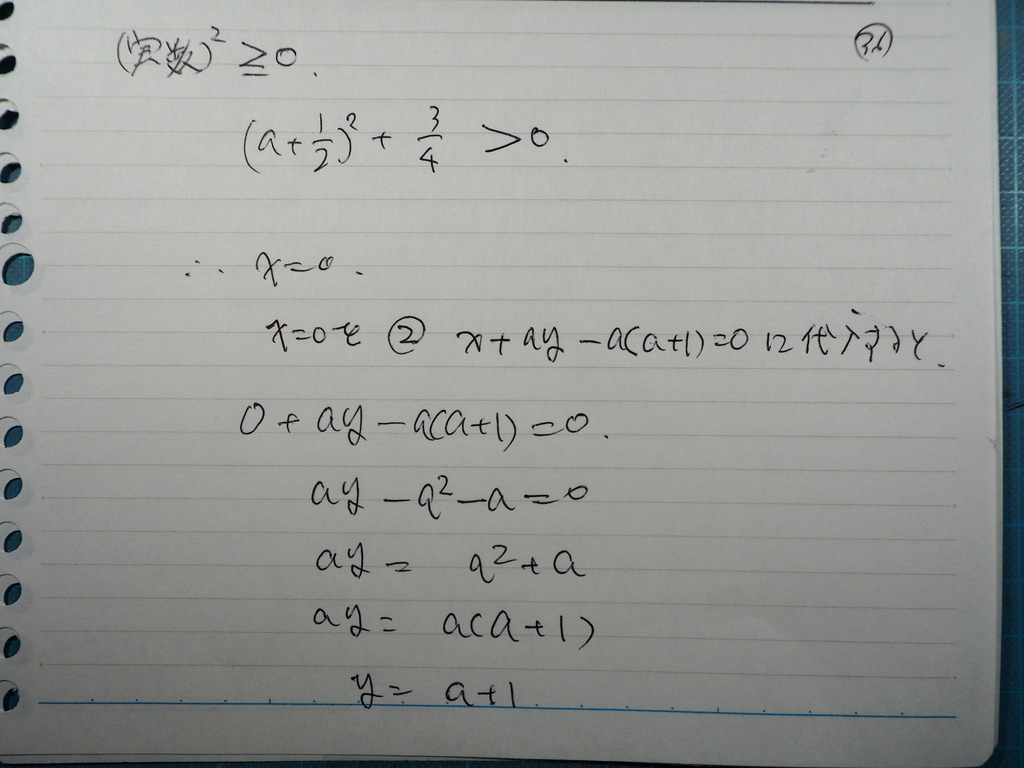 (36)
(実数)² ≧ 0.
(a + 1/2)² + 3/4 > 0.
∴ x = 0.
x = 0 を ② x + ay - a(a+1) = 0 に代入すると.
0 + ay - a(a+1) = 0.
ay - a² - a = 0
ay = a² + a
ay = a(a+1)
y = a+1